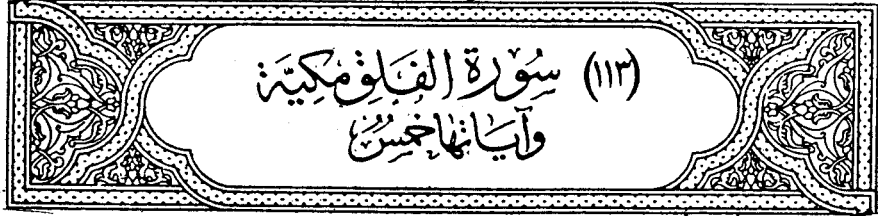 (١١٣) سُوْرَةُ الفَلَقِ مَكِيَّة
وَآيَاتُهَا خَمْسٌ